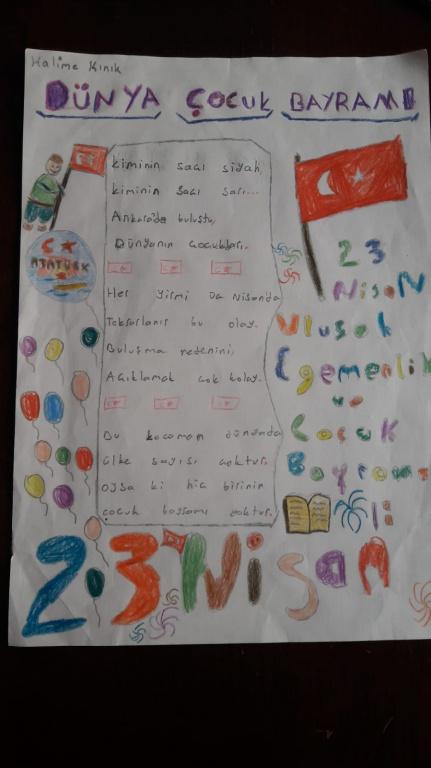 Halime Kınık
DÜNYA ÇOCUK BAYRAMI
Kiminin saçı siyah,
kiminin saçı sarı...
Ankara'da buluştu,
Dünyanın çocukları.
Her yirmi üç Nisan'da
Tekrarlanır bu olay.
Buluşma nedenini,
Açıklamak çok kolay.
Bu kocaman dünyada
ülke sayısı çoktur.
oysa ki hiç birinin
çocuk bayramı yoktur.
ATATÜRK
23
NisaN
Ulusal
Egemenlik
ve
Çocuk
Bayramı
23 Nisan